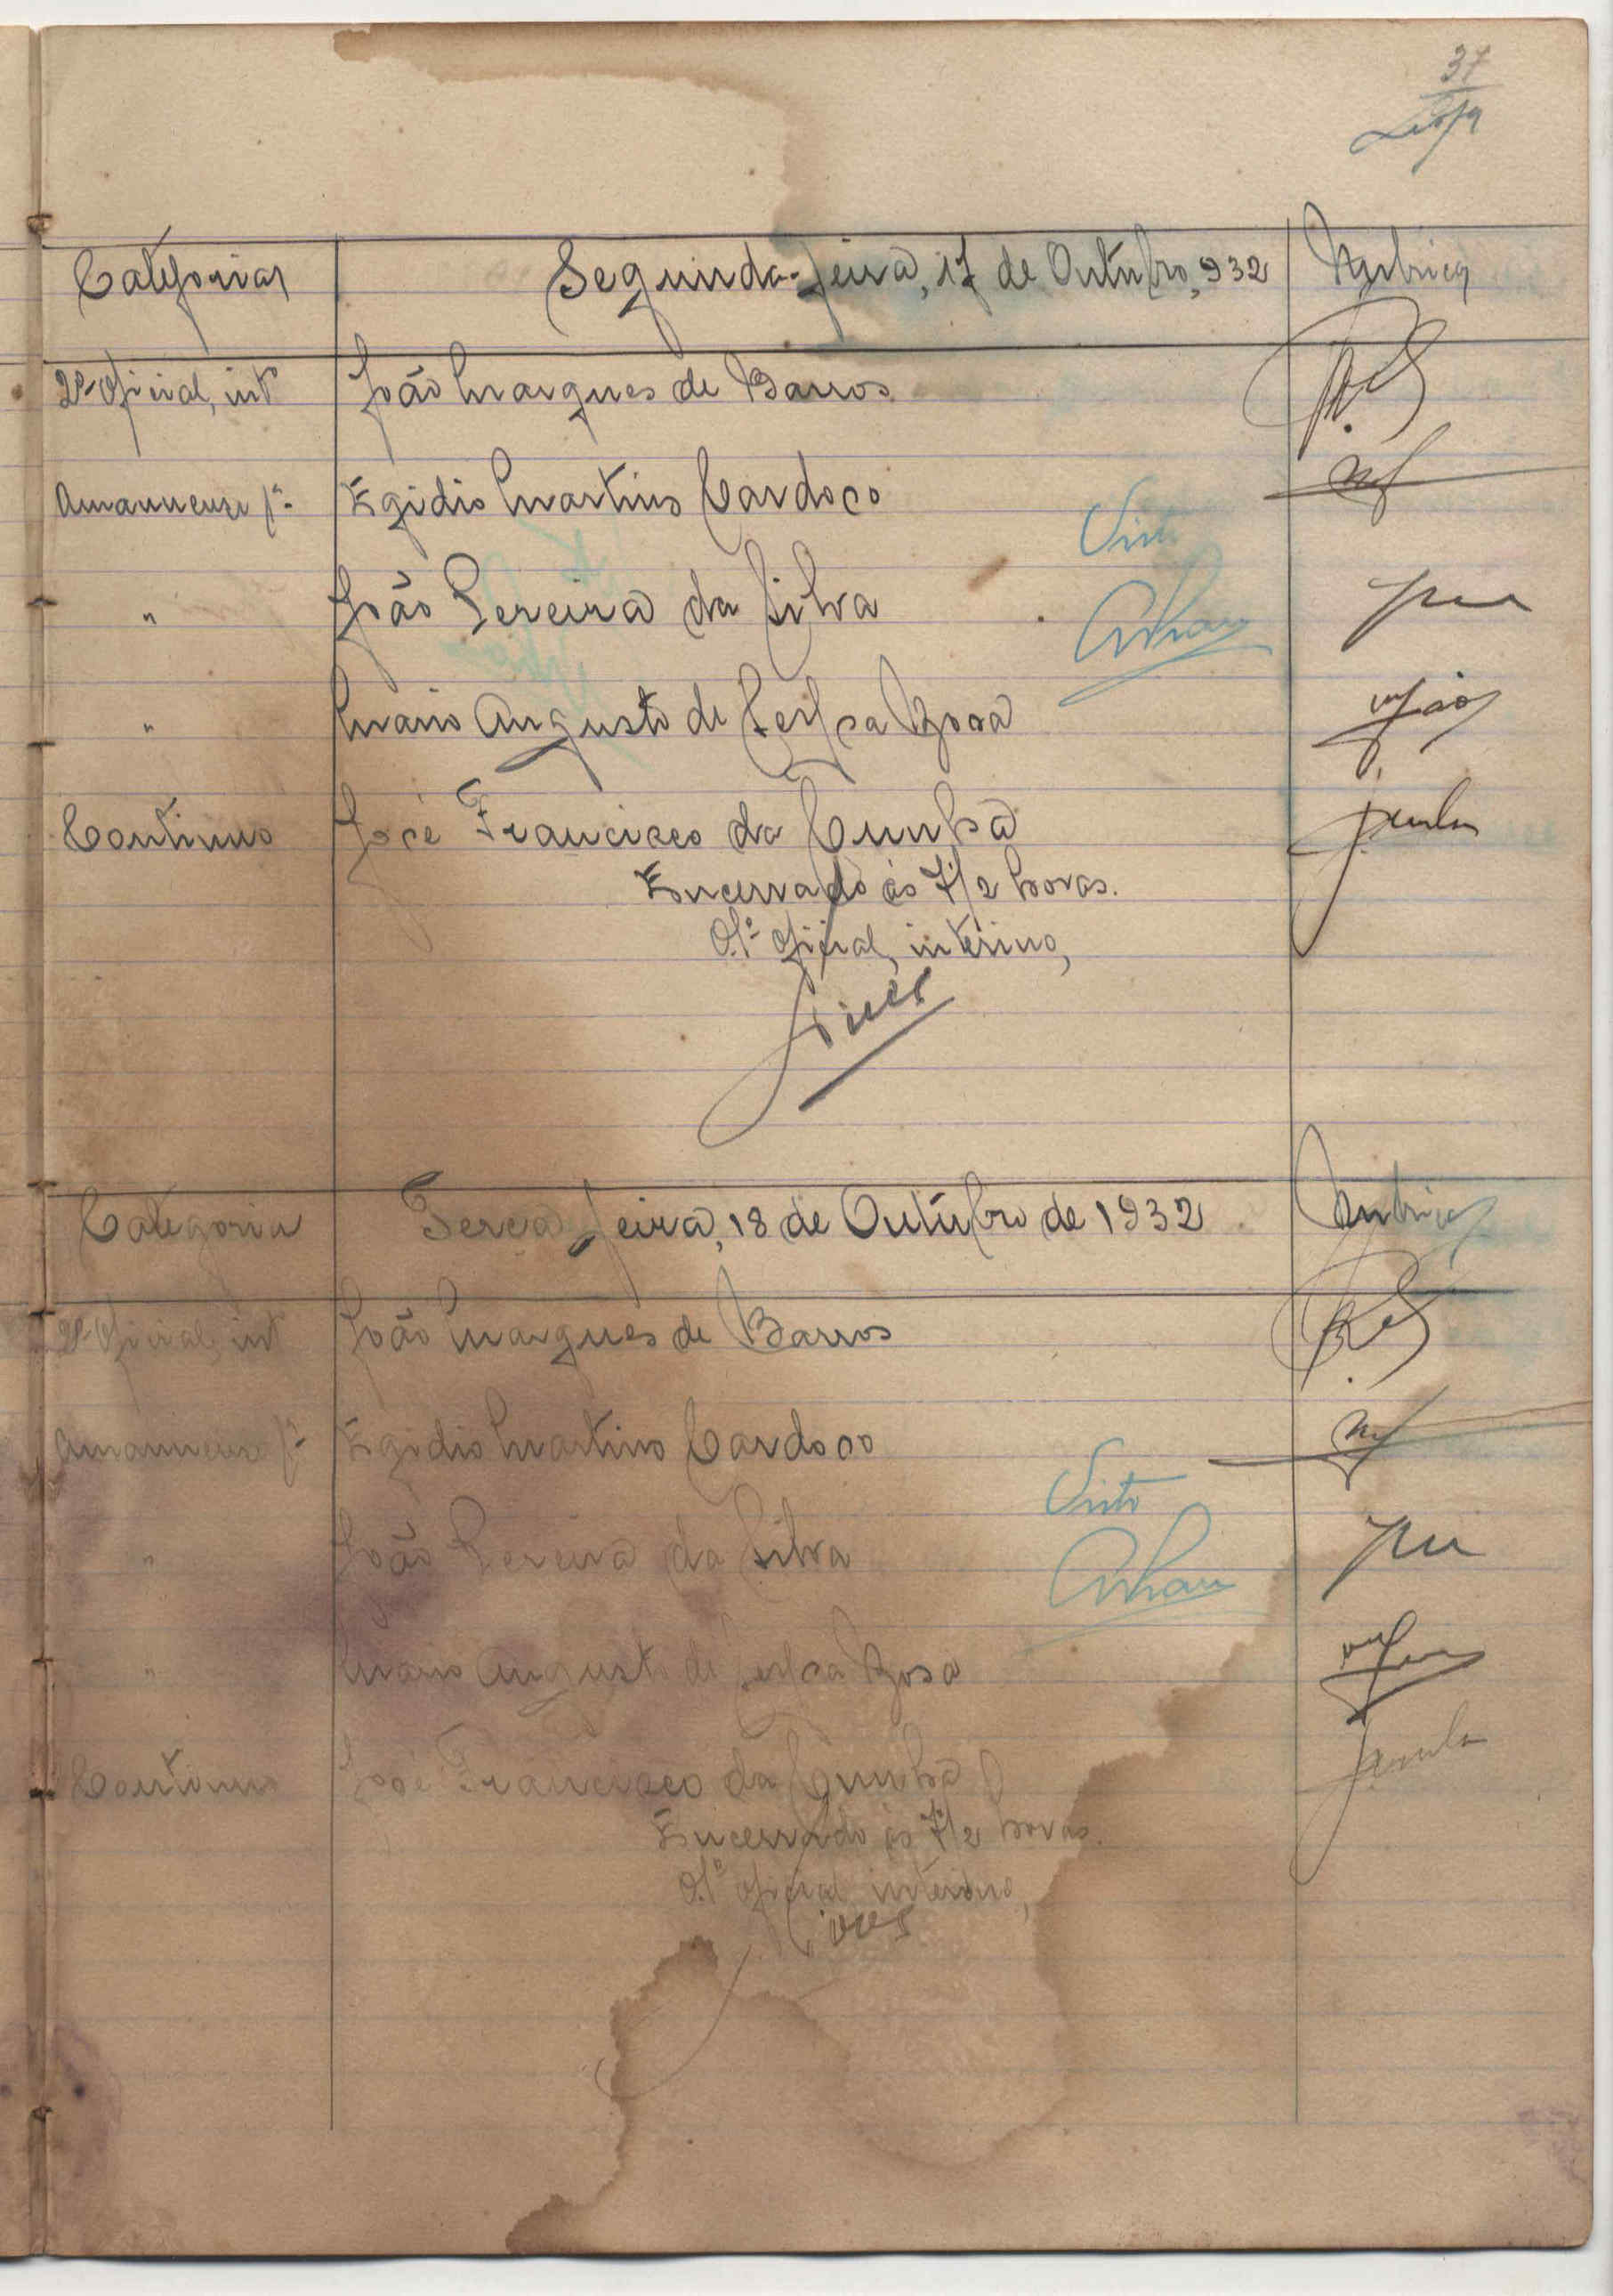 37
Categorias Segunda-feira, 17 de Outubro, 932 Rubrica
2º oficial, int João Marques de Barros
Amanuense Egidio Martins Cardoso
" João Pereira da Silva
Visto
" Mario Augusto de Rosa
Continuo José Francisco da Cunha
Encerrado ás 7 1/2 horas.
O 1º oficial, interino,
Categoria Terça feira, 18 de Outubro de 1932 Rubrica
2º oficial, int João Marques de Barros
Amanuense Egidio Martins Cardoso
Visto
" João Pereira da Silva
" Mario Augusto de Rosa
Continuo José Francisco da Cunha
Encerrado ás 7 1/2 horas.
O 1º oficial interino,